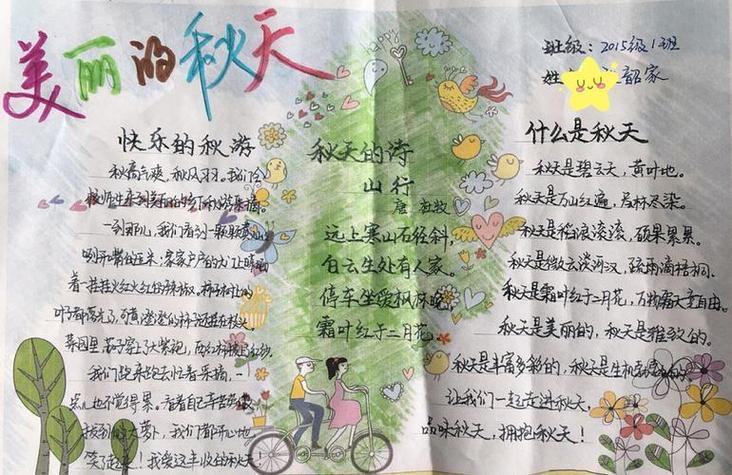 美丽的秋天
班级：2015级1班
姓 韶家
快乐的秋游
秋高气爽，秋风习习。我们全
校师生来到美丽的 秋游采摘。
一到那儿，我们看到一颗颗
咧开嘴在迎来；家家户户的 晒
着一挂挂火红火红的辣椒，柿子树上的
叶子都落光了，可 澄澄的柿子还挂在枝头，
菜园里，茄子穿上了紫袍，西红柿披上红纱。
我们跑来跑去忙着采摘，一
点儿也不觉得累。看着自己辛苦
拔到的大萝卜，我们都开心地
笑了起来！我爱这丰收的秋天！
秋天的诗
山行
唐 杜牧
远上寒山石径斜，
白云生处有人家。
停车坐爱枫林晚，
霜叶红于二月花。
什么是秋天
秋天是碧云天，黄叶地。
秋天是万山红遍，层林尽染。
秋天是稻浪滚滚，硕果累累。
秋天是微云淡河汉，疏雨滴梧桐。
秋天是霜叶红于二月花，万物霜天竞自由。
秋天是美丽的，秋天是雅致的。
秋天是丰富多彩的，秋天是生机勃勃的。
让我们一起走进秋天，
品味秋天，拥抱秋天！